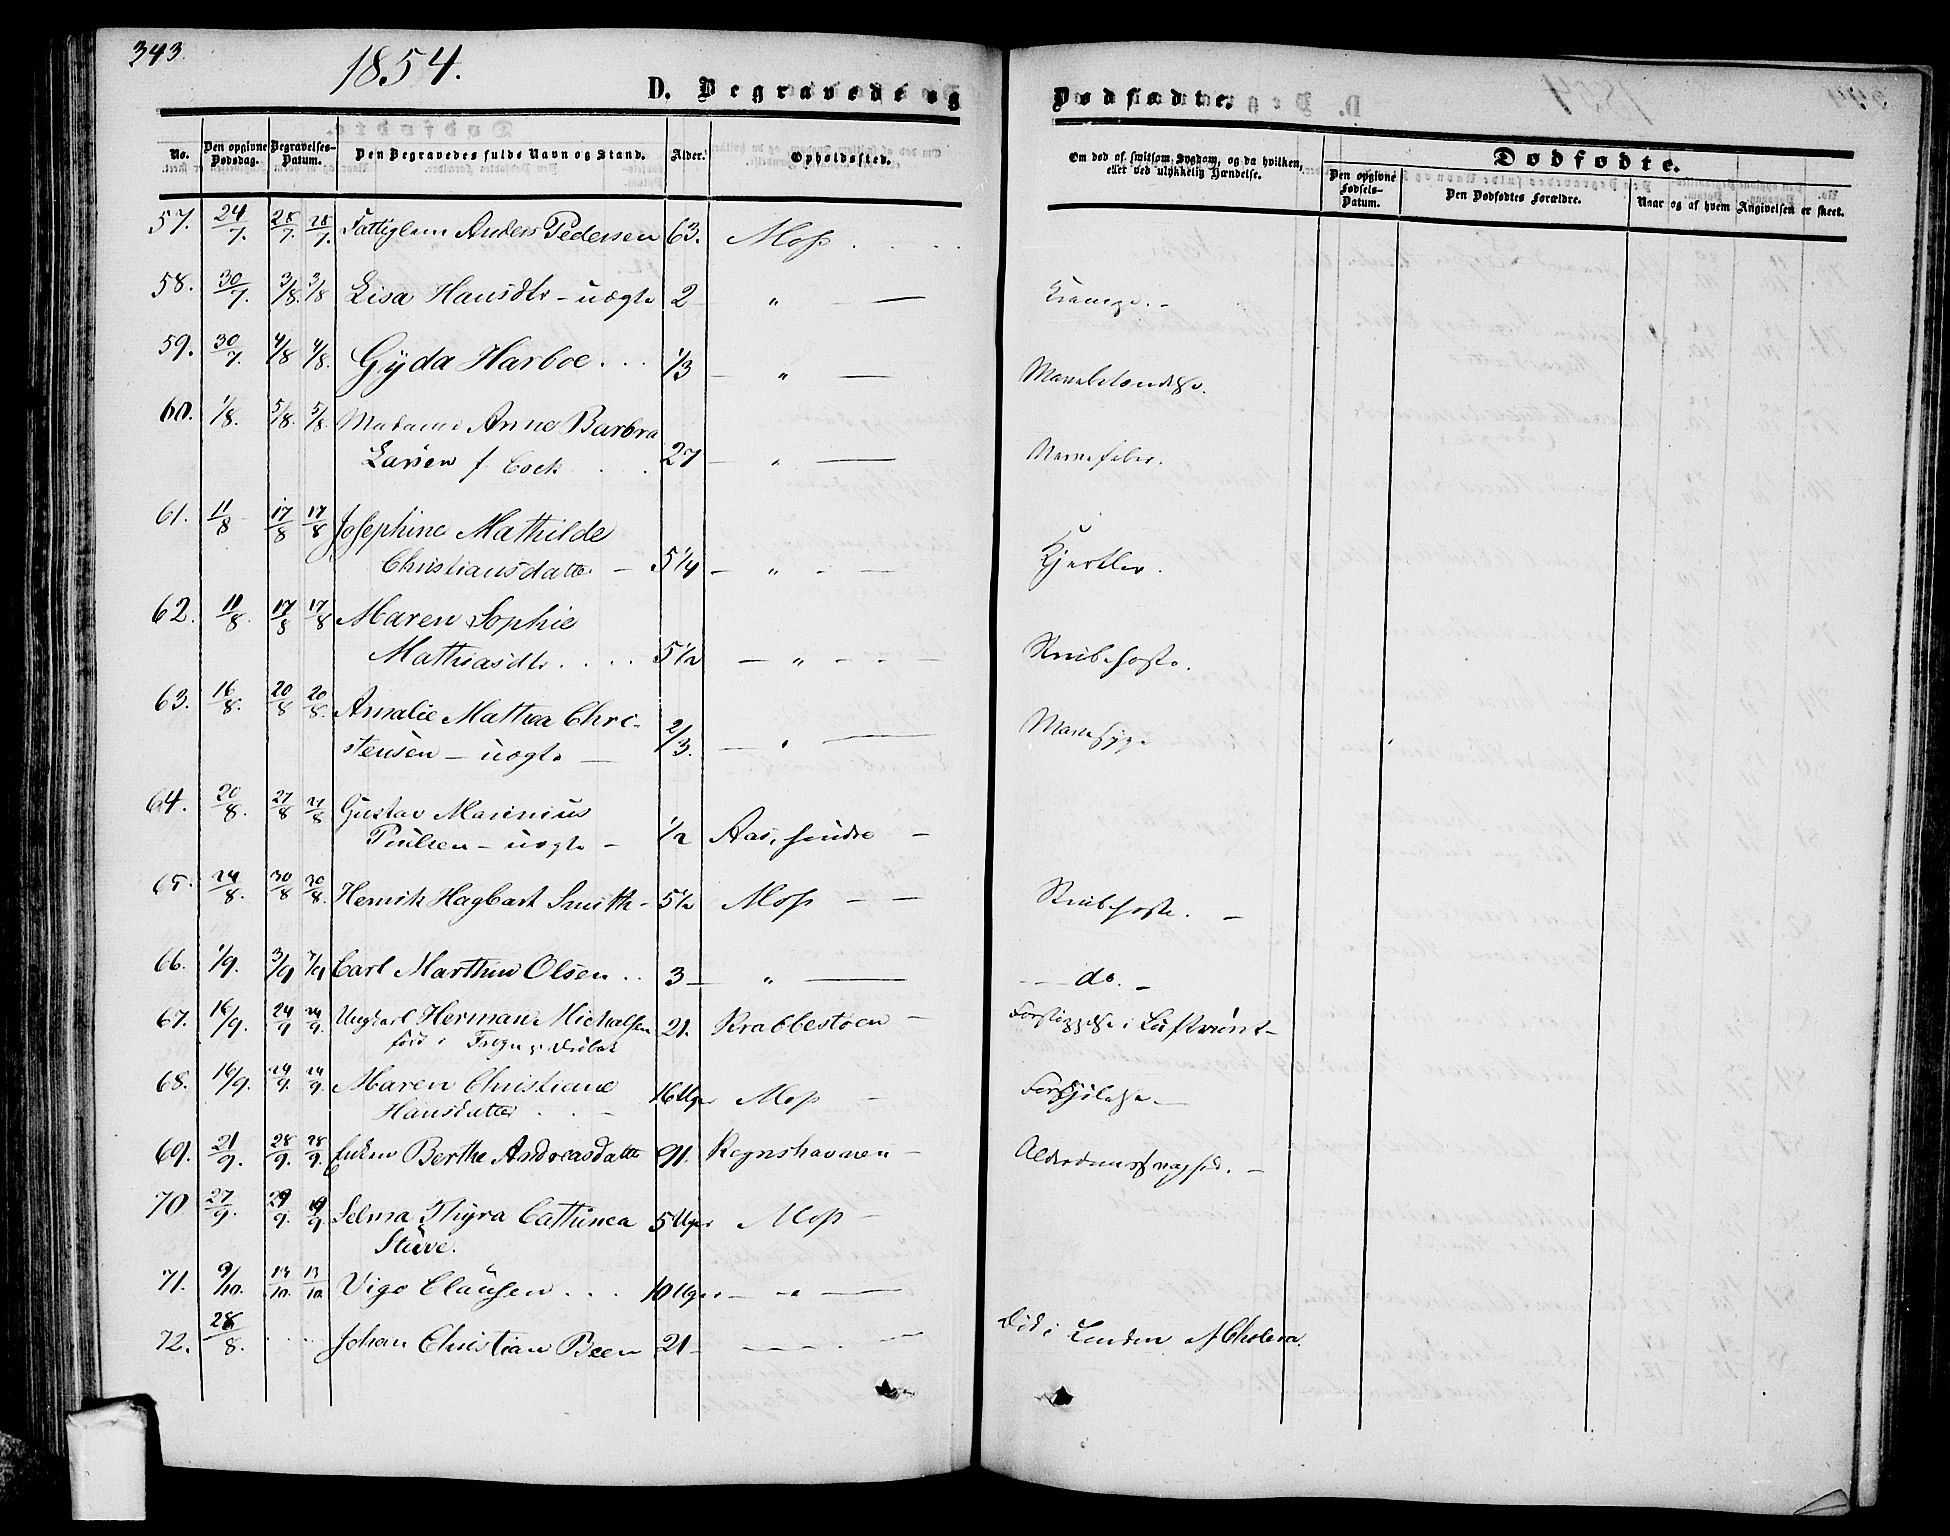 343.
1854.
D. Begravede og
Dødfødte.
No.
Den opgivne Dødsdag.
Begravelses-Datum.
Den Begravedes fulde Navn og Stand.
Alder.
Opholdssted.
Om død af smitsom Sygdom, og da hvilken,
eller ved ulykkelig Hændelse.
Dødfødte.
Den opgivne Fødsels-Datum.
Den Dødfødtes Forældre.
Naar og af hvem Angivelsen er skeet.
57. 24/7. 28/7. 28/7. Fattiglem Anders Pedersen 63. Moss
58. 30/7. 3/8. 3/8 Lisa Hansdtr - uægte 2 - " -
59. 30/7. 4/8 4/8. Gyda Harboe . . . 1/3 - " - Mavebetændelse.
60. 1/8. 5/8. 5/8. Madame Anne Barbra
Larsen f. Cock 27 - " -
61. 11/8 17/8 17/8 Josephine Mathilde
Christiansdatter - 5 1/4 - " - Kjertler.
62. 11/8. 17/8 17/8 Maren Sophie
Mathiasdtr. . . . 5 1/2 - " - Strubehoste.
63. 16/8. 20/8 20/8. Amalie Mathea Chri-
stensen - uægte - 2/3. - " - Mavesyge
64. 20/8. 27/8 27/8 Gustav Marinius
Paulsen - uægte - 1/2 Aas, søndre -
65. 24/8. 30/8 30/8. Henrik Hagbart Smith - 5 1/2 Moss - - Strubehoste. -
66. 1/9. 3/9 7/9 Carl Marthin Olsen . . 3 - " - do. -
67. 16/9. 24/9 24/9. Ungkarl Herman Michalsen 21. Krabbestøen - i Luftrøret -
68. 16/9. 24/9. 24/9. Maren Christiane
Hansdatter 16 Uger Moss - Forkjølelse. -
69. 21/9. 28/9. 28/9. Enken Berthe Andreasdatter 91. Regnshavnen - Alderdomssvaghed. -
70 27/9. 29/9. 29/9. Selma Thyra Cathinca
Stüwe. 5 Uger Moss -
71. 9/10. 13/10. 13/10 Vigo Clausen . . . 10 Uger - " -
72. 28/8. . . . Johan Christian Been 21 - Død i London af Cholera.